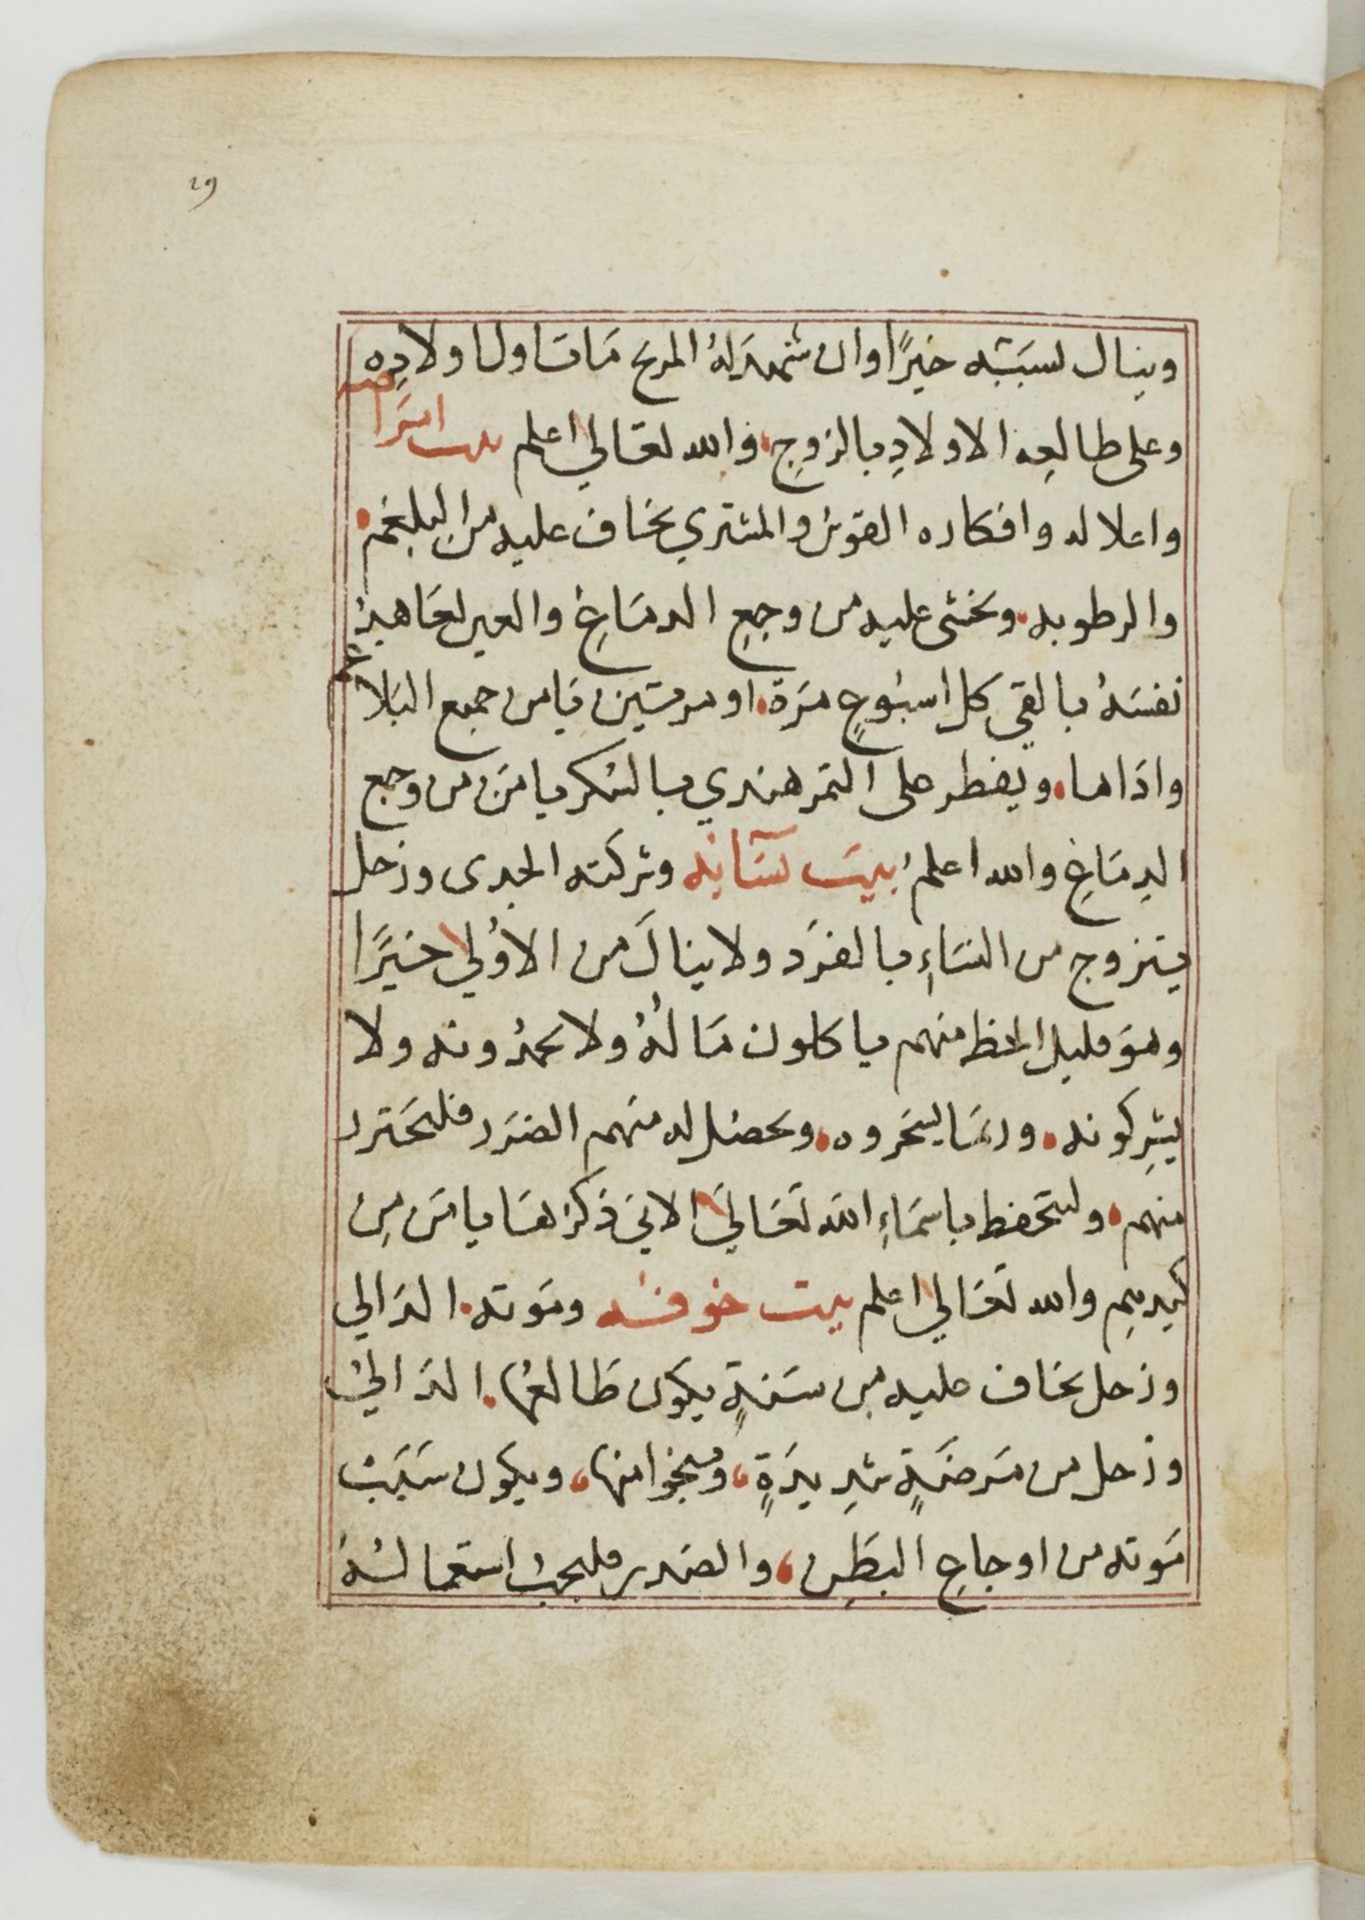 29
وينال لسببه خيرًا وان شهد لهُ المريخ مَات اول اولادِه
وعلى طالعه الاولادِ بالزوج، والله تعَالي اعلم بيت امرَاضه
واعلاله وافكاره القوس والمشتري يخاف عليه من البلغم
والرطوبه، ويخشى عليه من وجعِ الدمَاغِ والعين لعَاهدُ
نفسَهُ بالقي كل اسبُوعٍ مَرَة، او مرتين يامن جميع البَلاغم
واذاها، ويفطر على التمَر هندي بالسُكر يامَن من وجع
الدِمَاغِ والله اعلم بيت نسَآئه وشركته الجدى وزحل
يتزوج من النسَاءِ بالفرَد ولا ينالَ من الاوُلي خيَرًا
وهوَ قليل الحظ منهم ياكلون مَالهُ ولا يحمدُونه ولا
يشرِكونه، وربمَا يسحَروه، ويحصَل له منهم الضرَر فليحَترز
منهم، وليتحفظ باسمَاءِ الله تعَالي الاتي ذكرهَا يامَن مِن
كيدهِم والله تعَالي اعلم بيت خوفه ومَوته، الدَالي
وزحل يخاف عليه من سَنةٍ يكوَن طَالعُها، الدَالي
وزحل من مَرضَةٍ شدِيدَةٍ، وينجوا منها، ويكون سَبَبُ
مَوته من اوجاعِ البطَنِ، والصَدر فليجب استعمَالهُ